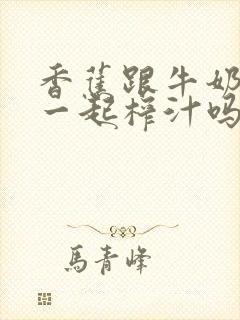 香蕉跟牛奶
一起榨汁吗
馬青峰